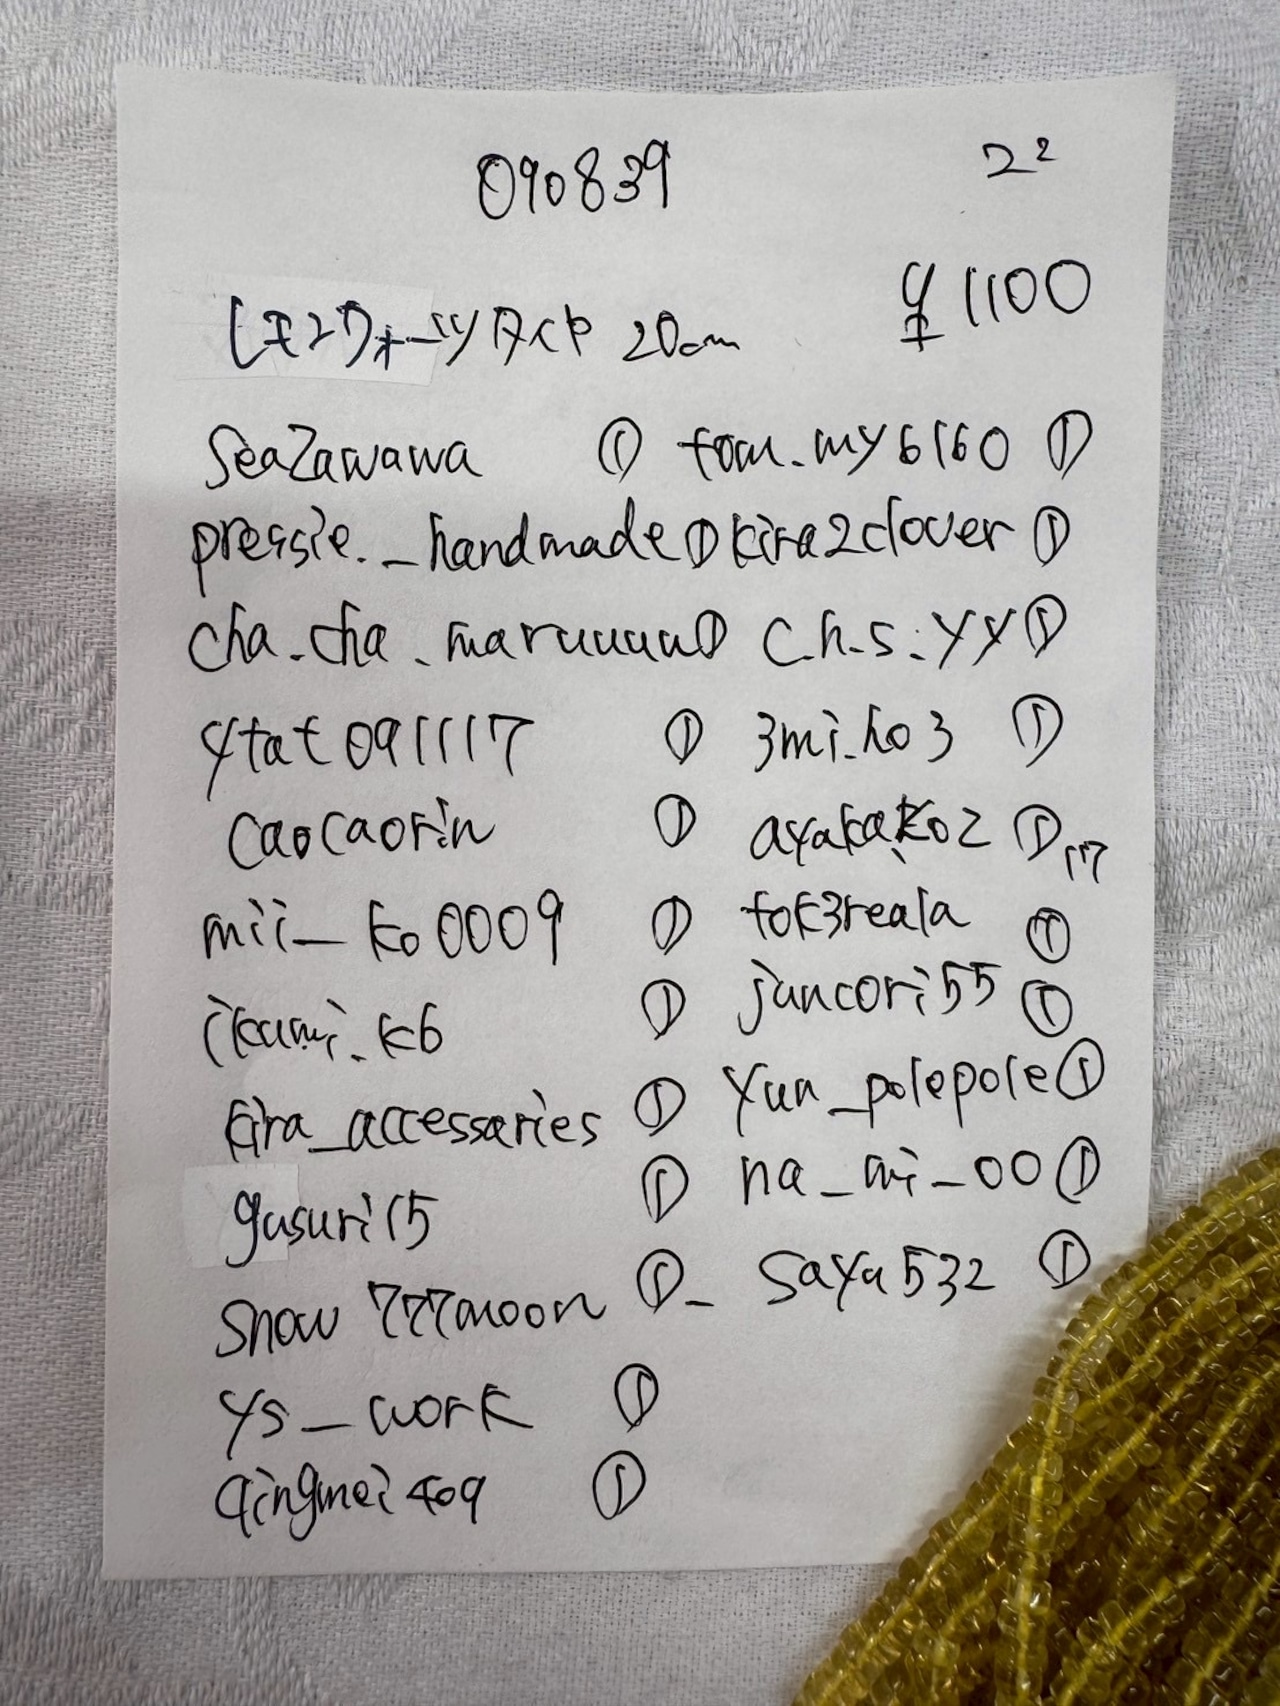 090839
2²
¥1100
20cm
seazawawa ① tom.my6160 ①
pressie._handmade ① kira2clover ①
cha.cha.maruuuu ① c.h.s.yy ①
ytat091117 ① 3mi.ho3 ①
caocaorin ① ayakako2 ① 117
mii_ko0009 ① tok3reala ①
ikumi.k6 ① juncori55 ①
kira_accessaries ① yun_polepole ①
gusuri15 ① na_mi_00 ①
snow777moon ①_ saya532 ①
ys_work ①
qingmei409 ①